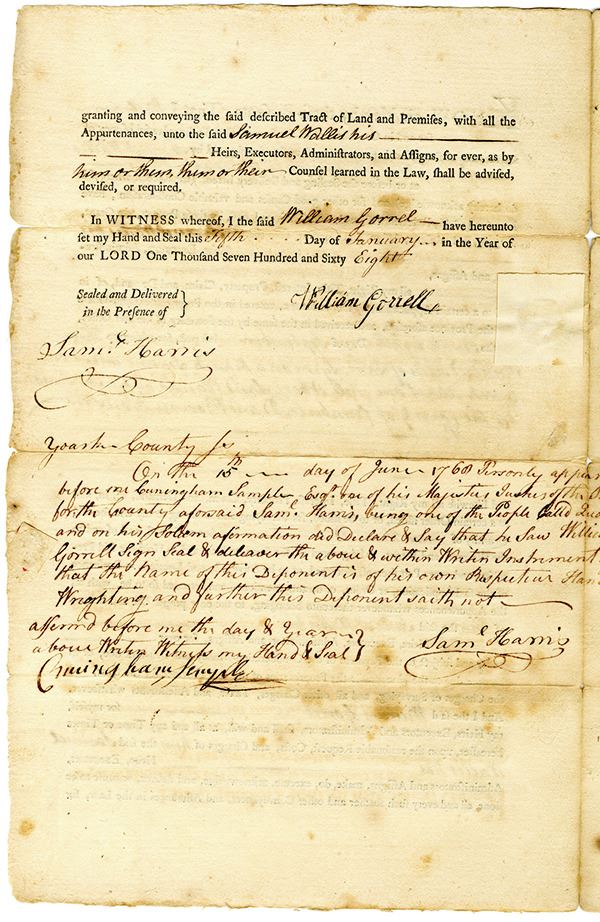 granting and conveying the said described Tract of Land and Premises, with all the
Appurtenances, unto the said Samuel Wallis his
Heirs, Executors, Administrators, and Assigns, for ever, as by
him or them, them or their Counsel learned in the Law, shall be advised,
devised, or required.
In WITNESS whereof, I the said William Gorrel have hereunto
set my Hand and Seal this Fifth Day of January in the Year of
our LORD One Thousand Seven Hundred and Sixty Eight
Sealed and Delivered
in the Presence of
William Gorrell
Saml. Harris
County Ss
On the 15th day of June 1768 Personly appear
before me Cuningham Sample Esqr. one of his Majesties of the
for the County aforsaid Saml. Harris, being one of the People Calld
and on his Solem afirmation did Declare & Say that he Saw Willi
Gorrell Sign Seal & deleaver the above & within Writen Instrement
that the Name of this Deponent is of his own Hand
Wrighting and further this Deponent saith not
before me the day & Year
above Writen Witness my Hand & Seal
Saml. Harris
Cuningham Sample